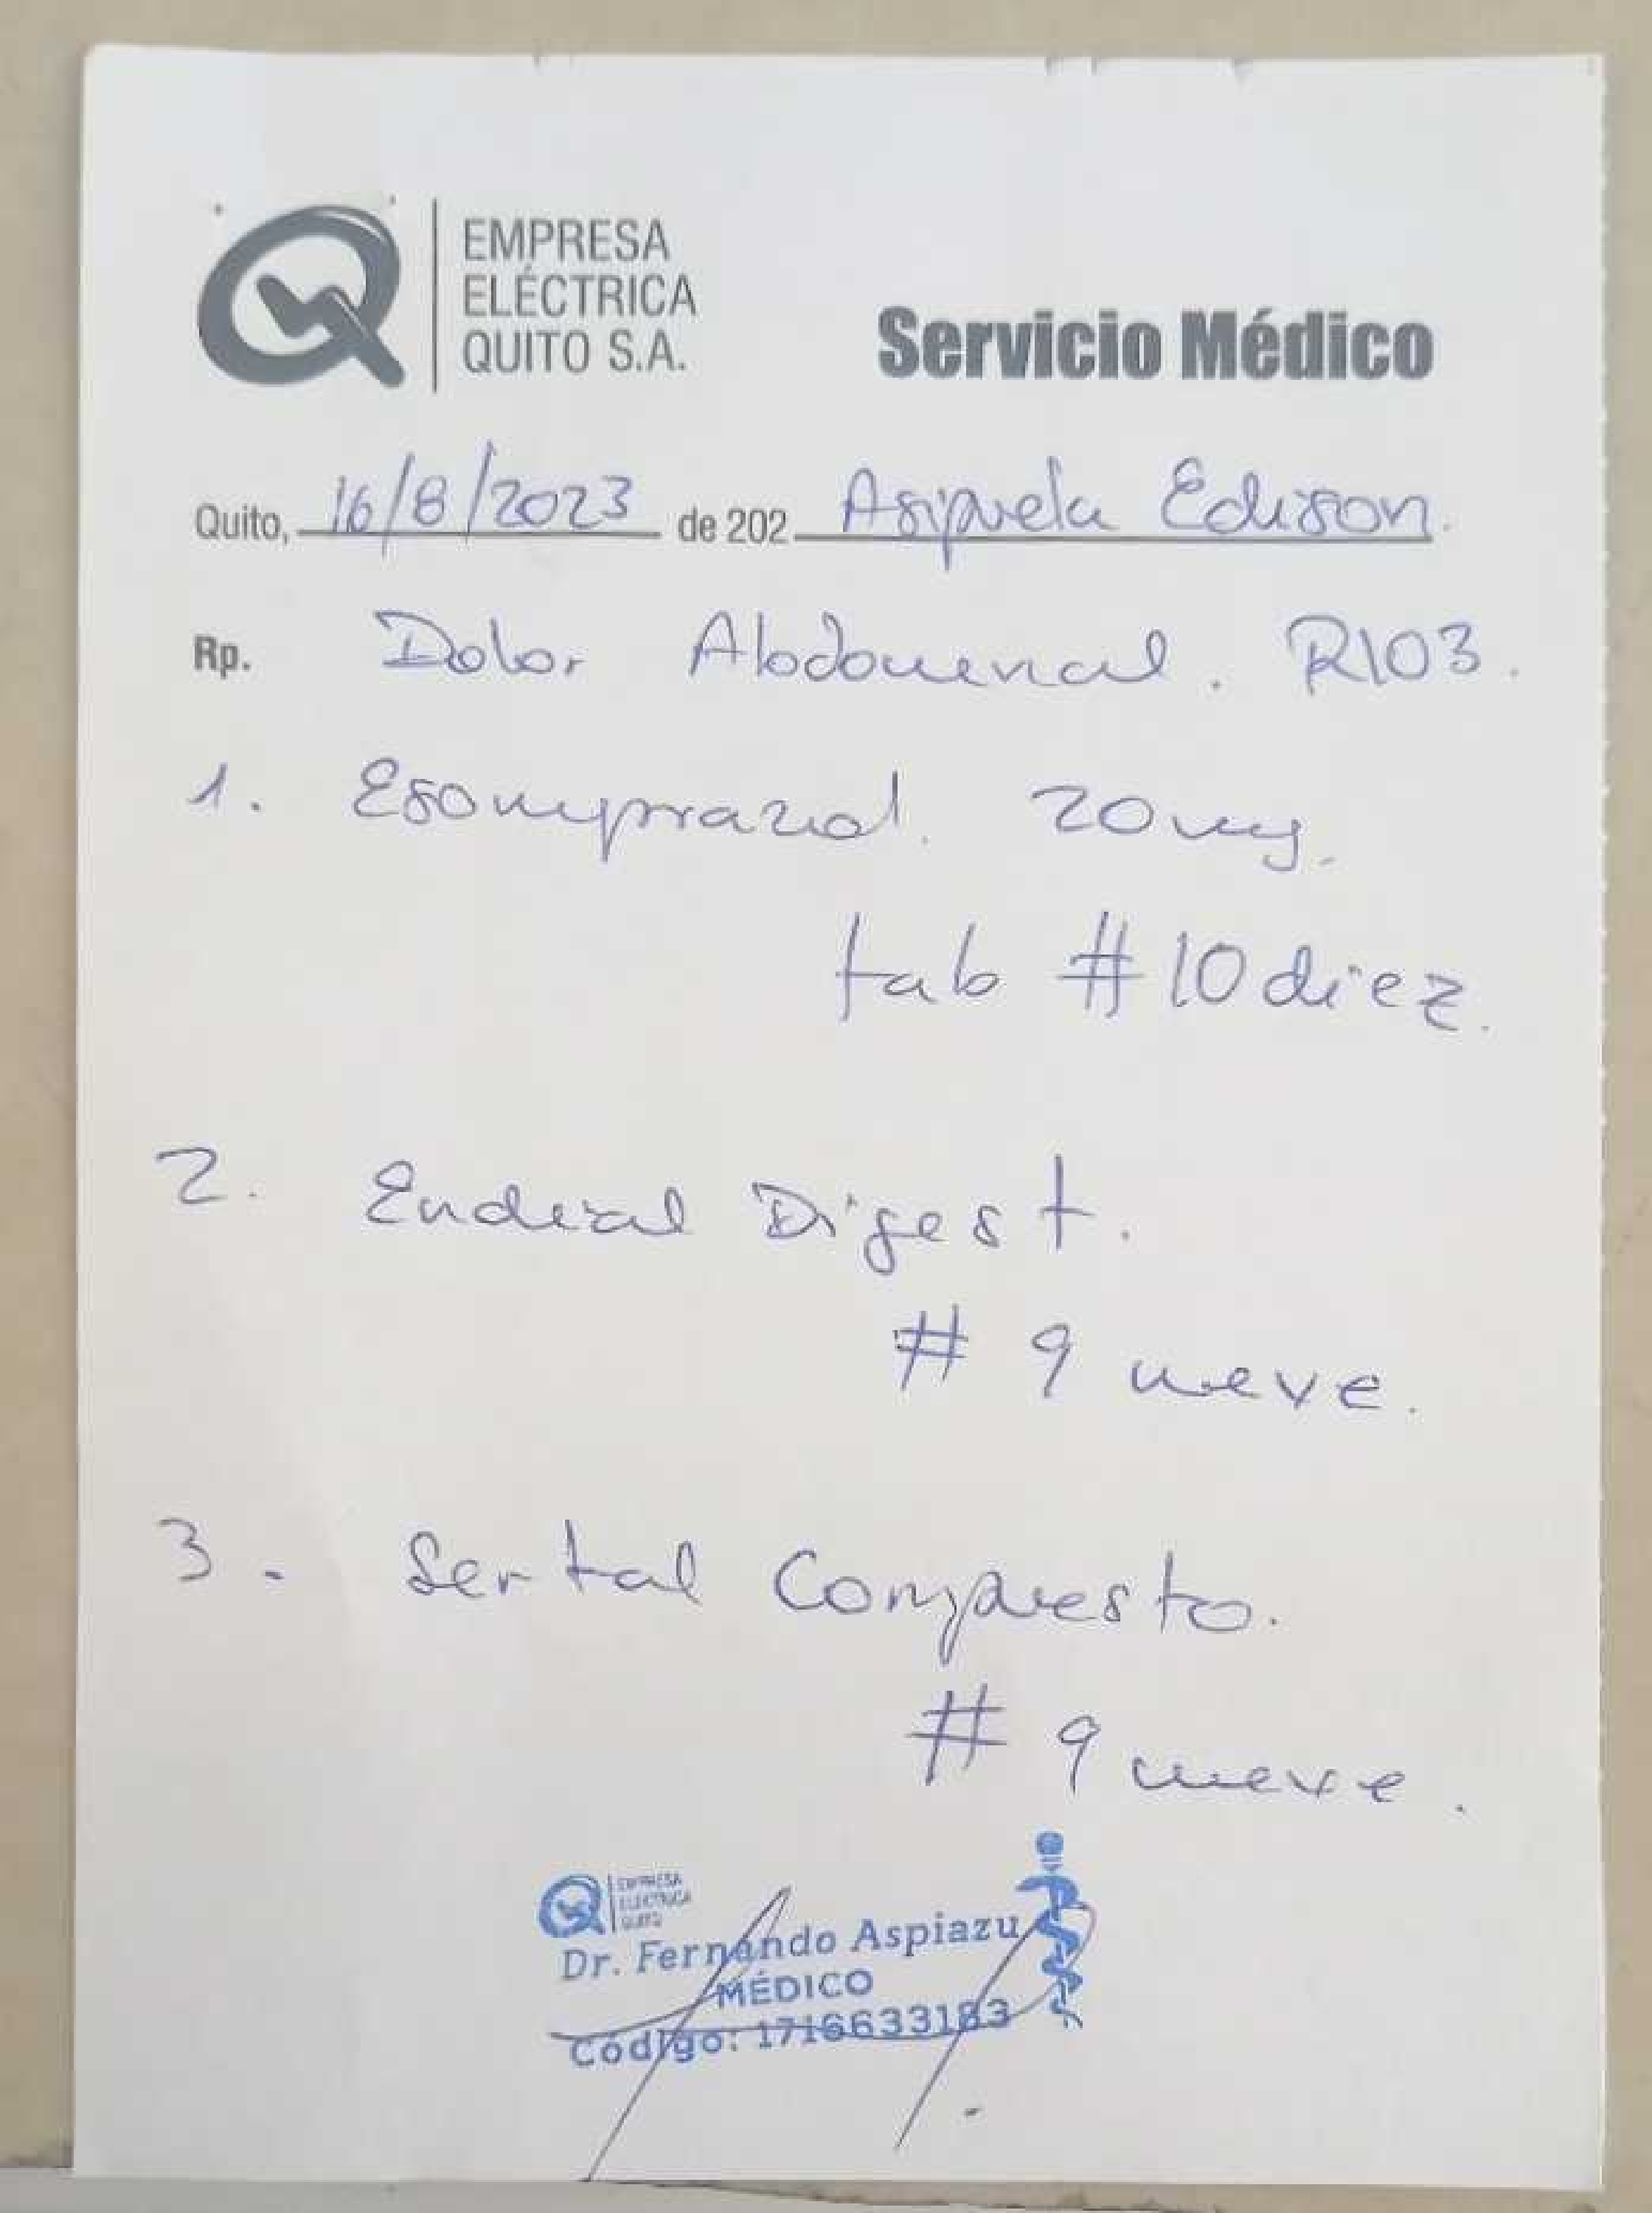 EMPRESA
ELÉCTRICA
QUITO S.A.
Servicio Médico
Quito, 16/8/2023 de 202 Asipuela Edison.
Rp. Dolor Abdomenal. R103.
1. Esomprazol. 20mg.
tab #10 diez.
2. Endial Digest.
# 9 nueve.
3. Sertal Compuesto.
# 9 nueve.
EMPRESA
ELÉCTRICA
QUITO
Dr. Fernando Aspiazu
MÉDICO
Código: 1716633183